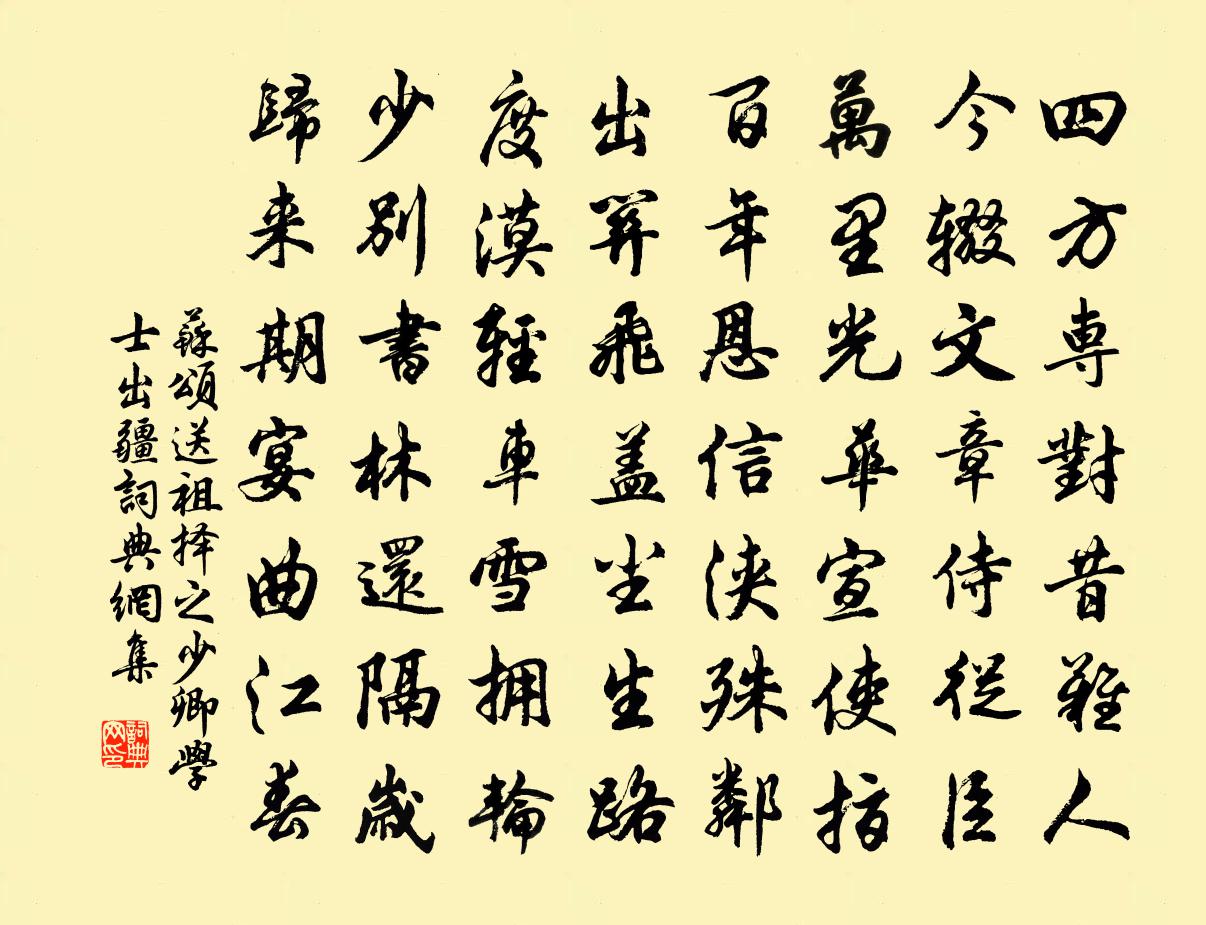 四方専對昔難人
今輟文章侍從臣
萬里光華宣使指
百年恩信浹殊鄰
出笄飛盖尘生路
度漠輕車雪拥輪
少別書林還隔歲
歸来期宴曲江春
蘇頌送祖择之少卿學
士出疆詞典網集
詞典网印